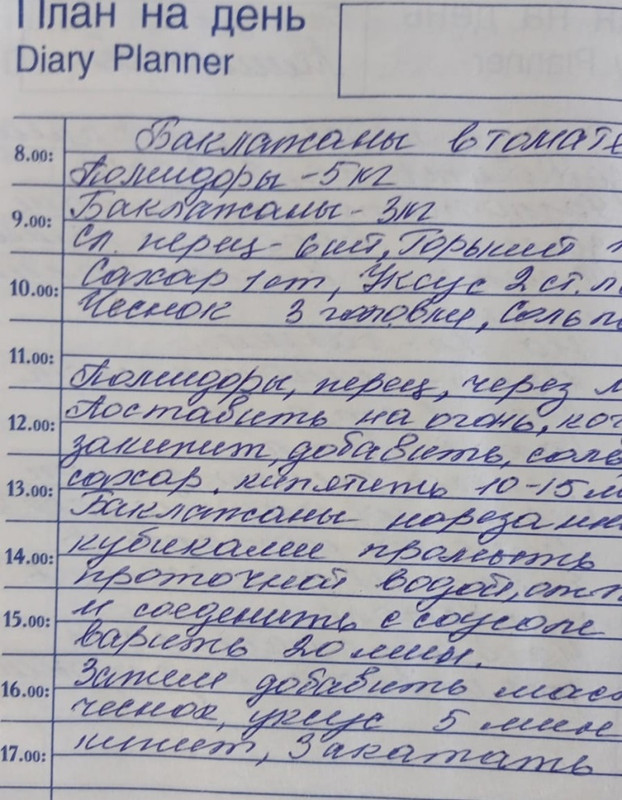 План на день
Diary Planner
Баклажаны в томате
8.00:
Помидоры - 5 кг
Баклажаны - 3 кг
9.00:
Сл. перец - 6 шт, Горький
Сахар 1 ст, Уксус 2 ст. л
10.00:
Чеснок 3 головки, Соль по
11.00:
Помидоры, перец, через м
Поставить на огонь, ког
12.00:
закипит, добавить, соль
сахар. кипятить 10-15 м
13.00:
Баклажаны нарезанн
кубиками промыть
14.00:
проточной водой, отж
и соеденить с соусом
15.00:
варить 20 мин.
Затем добавить мас
16.00:
чеснок, уксус 5 мин
кипит, Закатать
17.00: